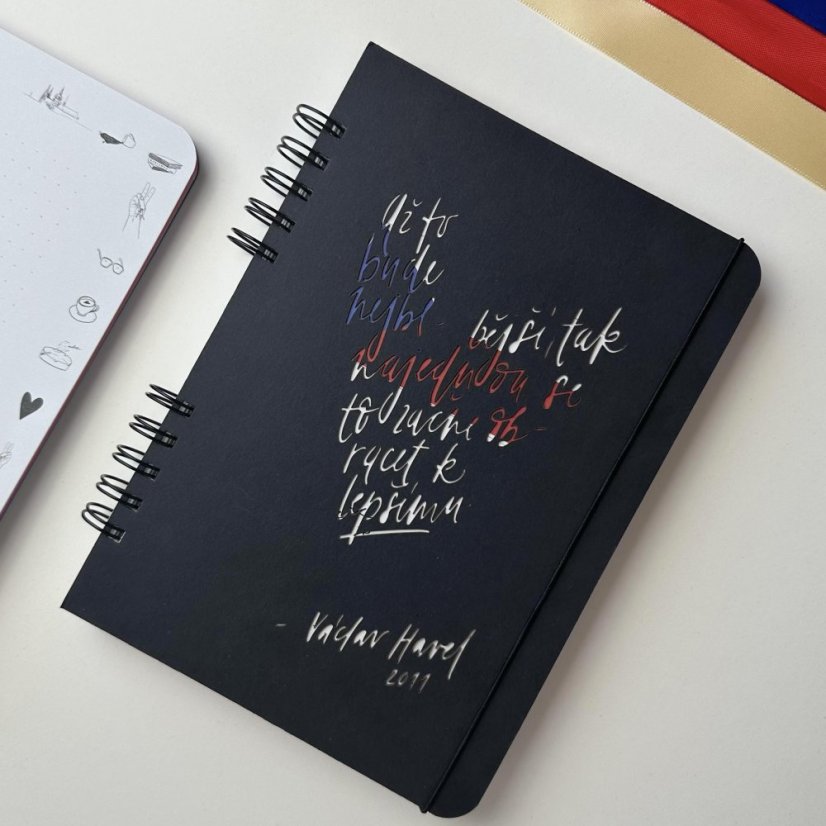 Až to
bude
nejhe-
bější, tak
najednou se
to začne ob-
racet k
lepšímu
- Václav Havel
2011